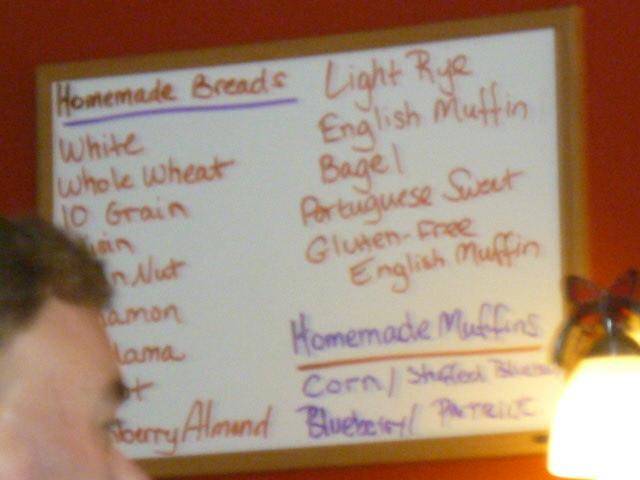 Homemade Breads
White
Whole Wheat
10 Grain
Nut
Almond
Light Rye
English Muffin
Bagel
Portuguese Sweet
Gluten-Free
English Muffin
Homemade Muffins
Corn / Stuffed
Blueberry /